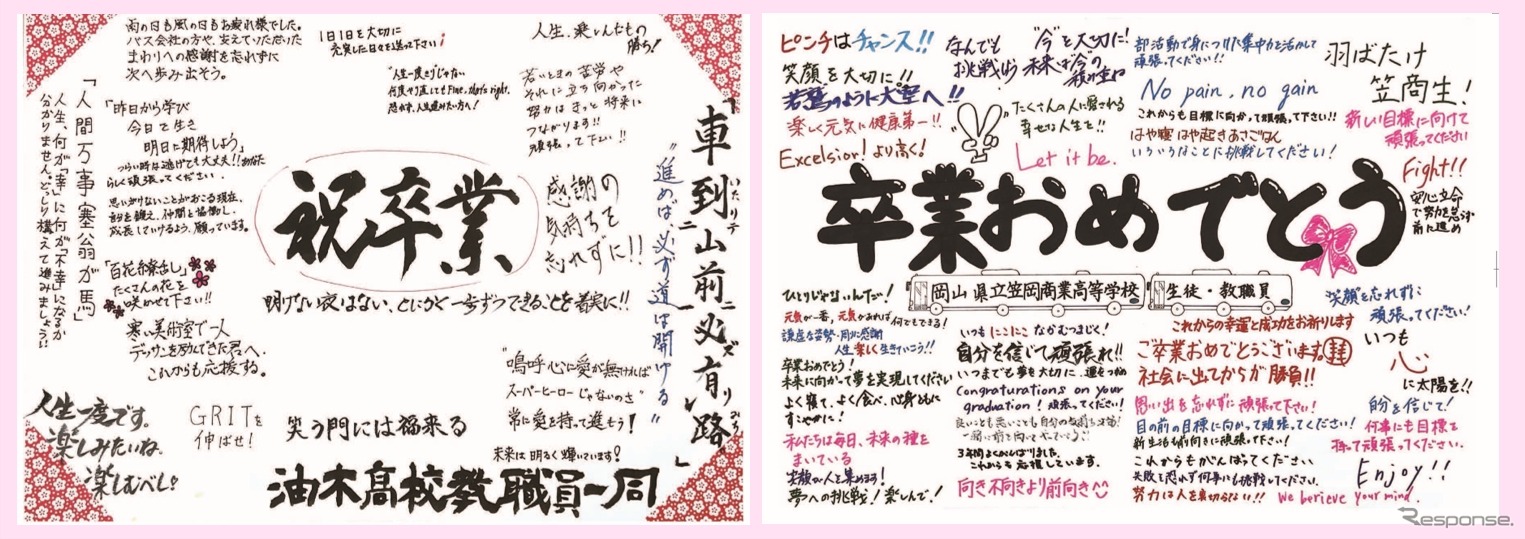 雨の日も風の日もお疲れ様でした。
バス会社の方や、支えていただいた
まわりへの感謝を忘れずに
次へ歩み出そう。
1日1日を大切に
充実した日々を送って下さい!
人生、楽しんだもの
勝ち!
「人間万事塞翁が馬」
人生、何が「幸」に何が「不幸」になるか
分かりません。どっしり構えて進みましょう!!
「昨日から学び
今日で生き
明日に期待しよう」
つらい時は逃げても大丈夫!!あなた
らしく頑張ってください。
思いがけないことがおこる現在、
自分を鍛え、仲間と協働し、
成長していけるよう、願っています。
"人生一度きりじゃない
何度やり直してもFine, that's right.
恐れず、人生進みたい方へ!
若いときの苦労や
それに立ち向かった
努力はきっと将来に
つながります!!
頑張って下さい!!
「車到山前必有路」
いたりテ
ニ
ズ
リ
みち
"進めば必ず道は開ける"
祝卒業
感謝の
気持ちを
忘れずに!!
「百花斉放」
たくさんの花を
咲かせて下さい!!
明けない夜はない、とにかく一歩ずつできることを着実に!!
寒い美術室で一人
デッサンを励んできた君へ。
これからも応援する。
"嗚呼心に愛が無ければ
スーパーヒーローじゃないのさ"
常に愛を持って進もう!
人生一度です。
楽しみたいね。
楽しむべし!
GRITを
伸ばせ!
笑う門には福来る
未来は明るく輝いています!
油木高校教職員一同
ピンチはチャンス!!
なんでも
挑戦
"今"を大切に!
未来は今の
積み重ね
部活動で身につけた集中力を活かして
頑張ってください!!
羽ばたけ
笠商生!
笑顔を大切に!!
若鷲のように大空へ!!
楽しく元気に健康第一!!
Excelsior! より高く!
たくさんの人に愛される
幸せな人生を!!
Let it be.
No pain, no gain
これからも目標に向かって頑張って下さい!!
はや寝はや起きあさごはん
いろいろなことに挑戦してください!
新しい目標に向けて
頑張ってください
Fight!!
安心立命
で努力を忘れず
前に進め
卒業おめでとう
岡山県立笠岡商業高等学校
生徒・教職員
ひとりじゃないんだ!
元気が一番、元気があれば何でもできる!
謙虚な姿勢・周りに感謝
人生楽しく生きていこう!!
卒業おめでとう!
未来に向かって夢を実現してください
よく寝て、よく食べ、心身ともに
すこやかに!
私たちは毎日、未来の種を
まいている
笑顔で人を集めよう!
夢への挑戦!楽しんで!
いつもにこにこなかむつまじく!
自分を信じて頑張れ!!
いつまでも夢を大切に、運をつかめ
Congraturations on your
graduation! 頑張ってください!
良いことも悪いことも自分の気持ち次第!
3年間よくがんばりました。
これからも応援しています。
向き不向きより前向き
これからの幸運と成功をお祈りします
ご卒業おめでとうございます。
社会に出てからが勝負!!
思い出を忘れずに頑張って下さい!
目の前の目標に向かって頑張ってください!
新生活も前向きに頑張って下さい!
これからもがんばってください
失敗を恐れず何事にも挑戦してください。
努力は人を裏切らない!!
笑顔を忘れずに
頑張ってください!
いつも
心
に太陽を!!
自分を信じて!
何事にも目標を
持って頑張ってください。
Enjoy!!
We berieve your mind.
Response.